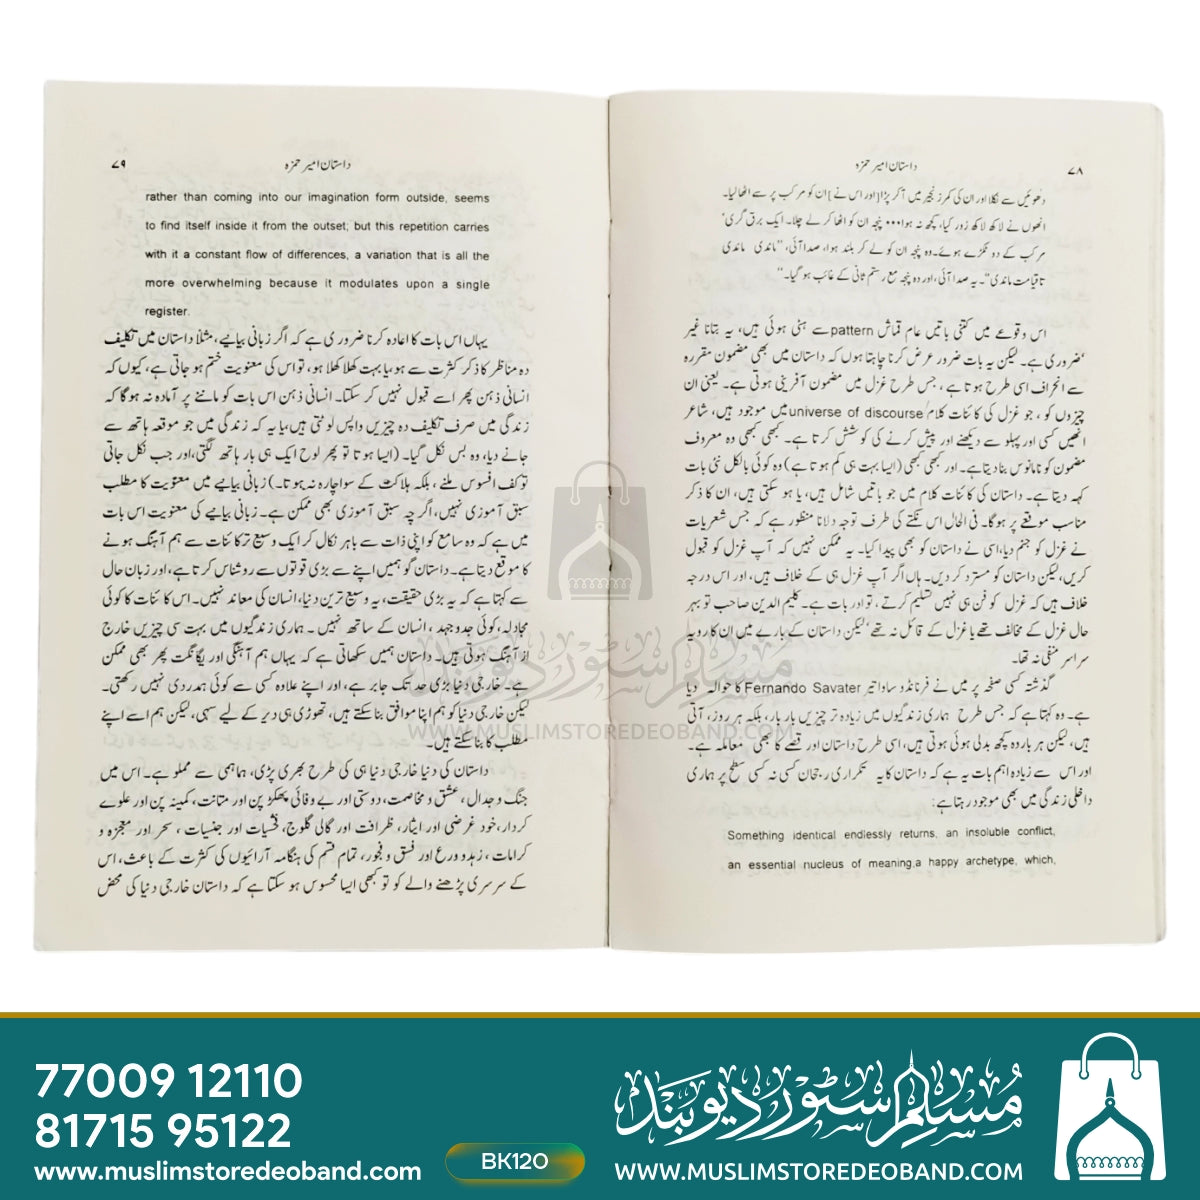 ۷۸
داستان امیر حمزہ
دھوئیں سے نکلا اور ان کی کمر زنجیر میں آکر پڑا [اور اس نے] ان کو مرکب پر سے اٹھا لیا۔
انھوں نے لاکھ لاکھ زور کیا، کچھ نہ ہوا۰۰۰ پنجہ ان کو اٹھا کر لے چلا۔ ایک برق گری'
مرکب کے دو ٹکڑے ہوئے۔ وہ پنجہ ان کو لے کر بلند ہوا، صدا آئی، ''ماندی ماندی
تا قیامت ماندی''۔ یہ صدا آئی، اور وہ پنجہ مع رستم ثانی کے غائب ہو گیا۔''
اس وقوعے میں کتنی باتیں عام قماش pattern سے ہٹی ہوئی ہیں، یہ بتانا غیر
ضروری ہے۔ لیکن یہ بات ضرور عرض کرنا چاہتا ہوں کہ داستان میں بھی مضمون مقررہ
سے انحراف اسی طرح ہوتا ہے، جس طرح غزل میں مضمون آفرینی ہوتی ہے۔ یعنی ان
چیزوں کو، جو غزل کی کائنات کلام universe of discourse میں موجود ہیں، شاعر
انھیں کسی اور پہلو سے دیکھنے اور پیش کرنے کی کوشش کرتا ہے۔ کبھی کبھی وہ معروف
مضمون کو نامانوس بنا دیتا ہے۔ اور کبھی کبھی (ایسا بہت ہی کم ہوتا ہے) وہ کوئی بالکل نئی بات
کہہ دیتا ہے۔ داستان کی کائنات کلام میں جو باتیں شامل ہیں، یا ہو سکتی ہیں، ان کا ذکر
مناسب موقعے پر ہوگا۔ فی الحال اس نکتے کی طرف توجہ دلانا منظور ہے کہ جس شعریات
نے غزل کو جنم دیا، اسی نے داستان کو بھی پیدا کیا۔ یہ ممکن نہیں کہ آپ غزل کو قبول
کریں، لیکن داستان کو مسترد کر دیں۔ ہاں اگر آپ غزل ہی کے خلاف ہیں، اور اس درجہ
خلاف ہیں کہ غزل کو فن ہی نہیں تسلیم کرتے، تو اور بات ہے۔ کلیم الدین صاحب تو بہر
حال غزل کے مخالف تھے یا غزل کے قائل نہ تھے' لیکن داستان کے بارے میں ان کا رویہ
سراسر منفی نہ تھا۔
گذشتہ کسی صفحہ پر میں نے فرنانڈو ساواتیر Fernando Savater کا حوالہ دیا
ہے۔ وہ کہتا ہے کہ جس طرح ہماری زندگیوں میں زیادہ تر چیزیں بار بار، بلکہ ہر روز، آتی
ہیں، لیکن ہر بار وہ کچھ بدلی ہوئی ہوتی ہیں، اسی طرح داستان اور قصے کا بھی معاملہ ہے۔
اور اس سے زیادہ اہم بات یہ ہے کہ داستان کا یہ تکراری رجحان کسی نہ کسی سطح پر ہماری
داخلی زندگی میں بھی موجود رہتا ہے:
Something identical endlessly returns, an insoluble conflict,
an essential nucleus of meaning,a happy archetype, which,
داستان امیر حمزہ
۷۹
rather than coming into our imagination form outside, seems
to find itself inside it from the outset; but this repetition carries
with it a constant flow of differences, a variation that is all the
more overwhelming because it modulates upon a single
register.
یہاں اس بات کا اعادہ کرنا ضروری ہے کہ اگر زبانی بیانیے، مثلاً داستان میں تکلیف
دہ مناظر کا ذکر کثرت سے ہو، یا بہت کھلا کھلا ہو، تو اس کی معنویت ختم ہو جاتی ہے، کیوں کہ
انسانی ذہن پھر اسے قبول نہیں کر سکتا۔ انسانی ذہن اس بات کو ماننے پر آمادہ نہ ہوگا کہ
زندگی میں صرف تکلیف دہ چیزیں واپس لوٹتی ہیں، یا یہ کہ زندگی میں جو موقعہ ہاتھ سے
جانے دیا، وہ بس نکل گیا۔ (ایسا ہوتا تو پھر لوح ایک ہی بار ہاتھ لگتی، اور جب نکل جاتی
تو کف افسوس ملنے، بلکہ ہلاکت کے سوا چارہ نہ ہوتا۔) زبانی بیانیے میں معنویت کا مطلب
سبق آموزی نہیں، اگرچہ سبق آموزی بھی ممکن ہے۔ زبانی بیانیے کی معنویت اس بات
میں ہے کہ وہ سامع کو اپنی ذات سے باہر نکال کر ایک وسیع تر کائنات سے ہم آہنگ ہونے
کا موقع دیتا ہے۔ داستان گو ہمیں اپنے سے بڑی قوتوں سے روشناس کرتا ہے، اور زبان حال
سے کہتا ہے کہ یہ بڑی حقیقت، یہ وسیع ترین دنیا، انسان کی معاند نہیں۔ اس کائنات کا کوئی
مجادلہ، کوئی جدوجہد، انسان کے ساتھ نہیں۔ ہماری زندگیوں میں بہت سی چیزیں خارج
از آہنگ ہوتی ہیں۔ داستان ہمیں سکھاتی ہے کہ یہاں ہم آہنگی اور یگانگت پھر بھی ممکن
ہے۔ خارجی دنیا بڑی حد تک جابر ہے، اور اپنے علاوہ کسی سے کوئی ہمدردی نہیں رکھتی۔
لیکن خارجی دنیا کو ہم اپنا موافق بنا سکتے ہیں، تھوڑی ہی دیر کے لیے سہی، لیکن ہم اسے اپنے
مطلب کا بنا سکتے ہیں۔
داستان کی دنیا خارجی دنیا ہی کی طرح بھری پڑی، ہماہمی سے مملو ہے۔ اس میں
جنگ و جدال، عشق و مخاصمت، دوستی اور بے وفائی، پھکڑ پن اور متانت، کمینہ پن اور علوے
کردار، خود غرضی اور ایثار، ظرافت اور گالی گلوج، فحشیات اور جنسیات، سحر اور معجزہ و
کرامات، زہد و ورع اور فسق و فجور، تمام قسم کی ہنگامہ آرائیوں کی کثرت کے باعث، اس
کے سرسری پڑھنے والے کو تو کبھی ایسا محسوس ہو سکتا ہے کہ داستان خارجی دنیا کی محض
مسلم سٹور دیوبند
WWW.MUSLIMSTOREDEOBAND.COM
77009 12110
81715 95122
www.muslimstoredeoband.com
BK120
مسلم سٹور دیوبند
WWW.MUSLIMSTOREDEOBAND.COM